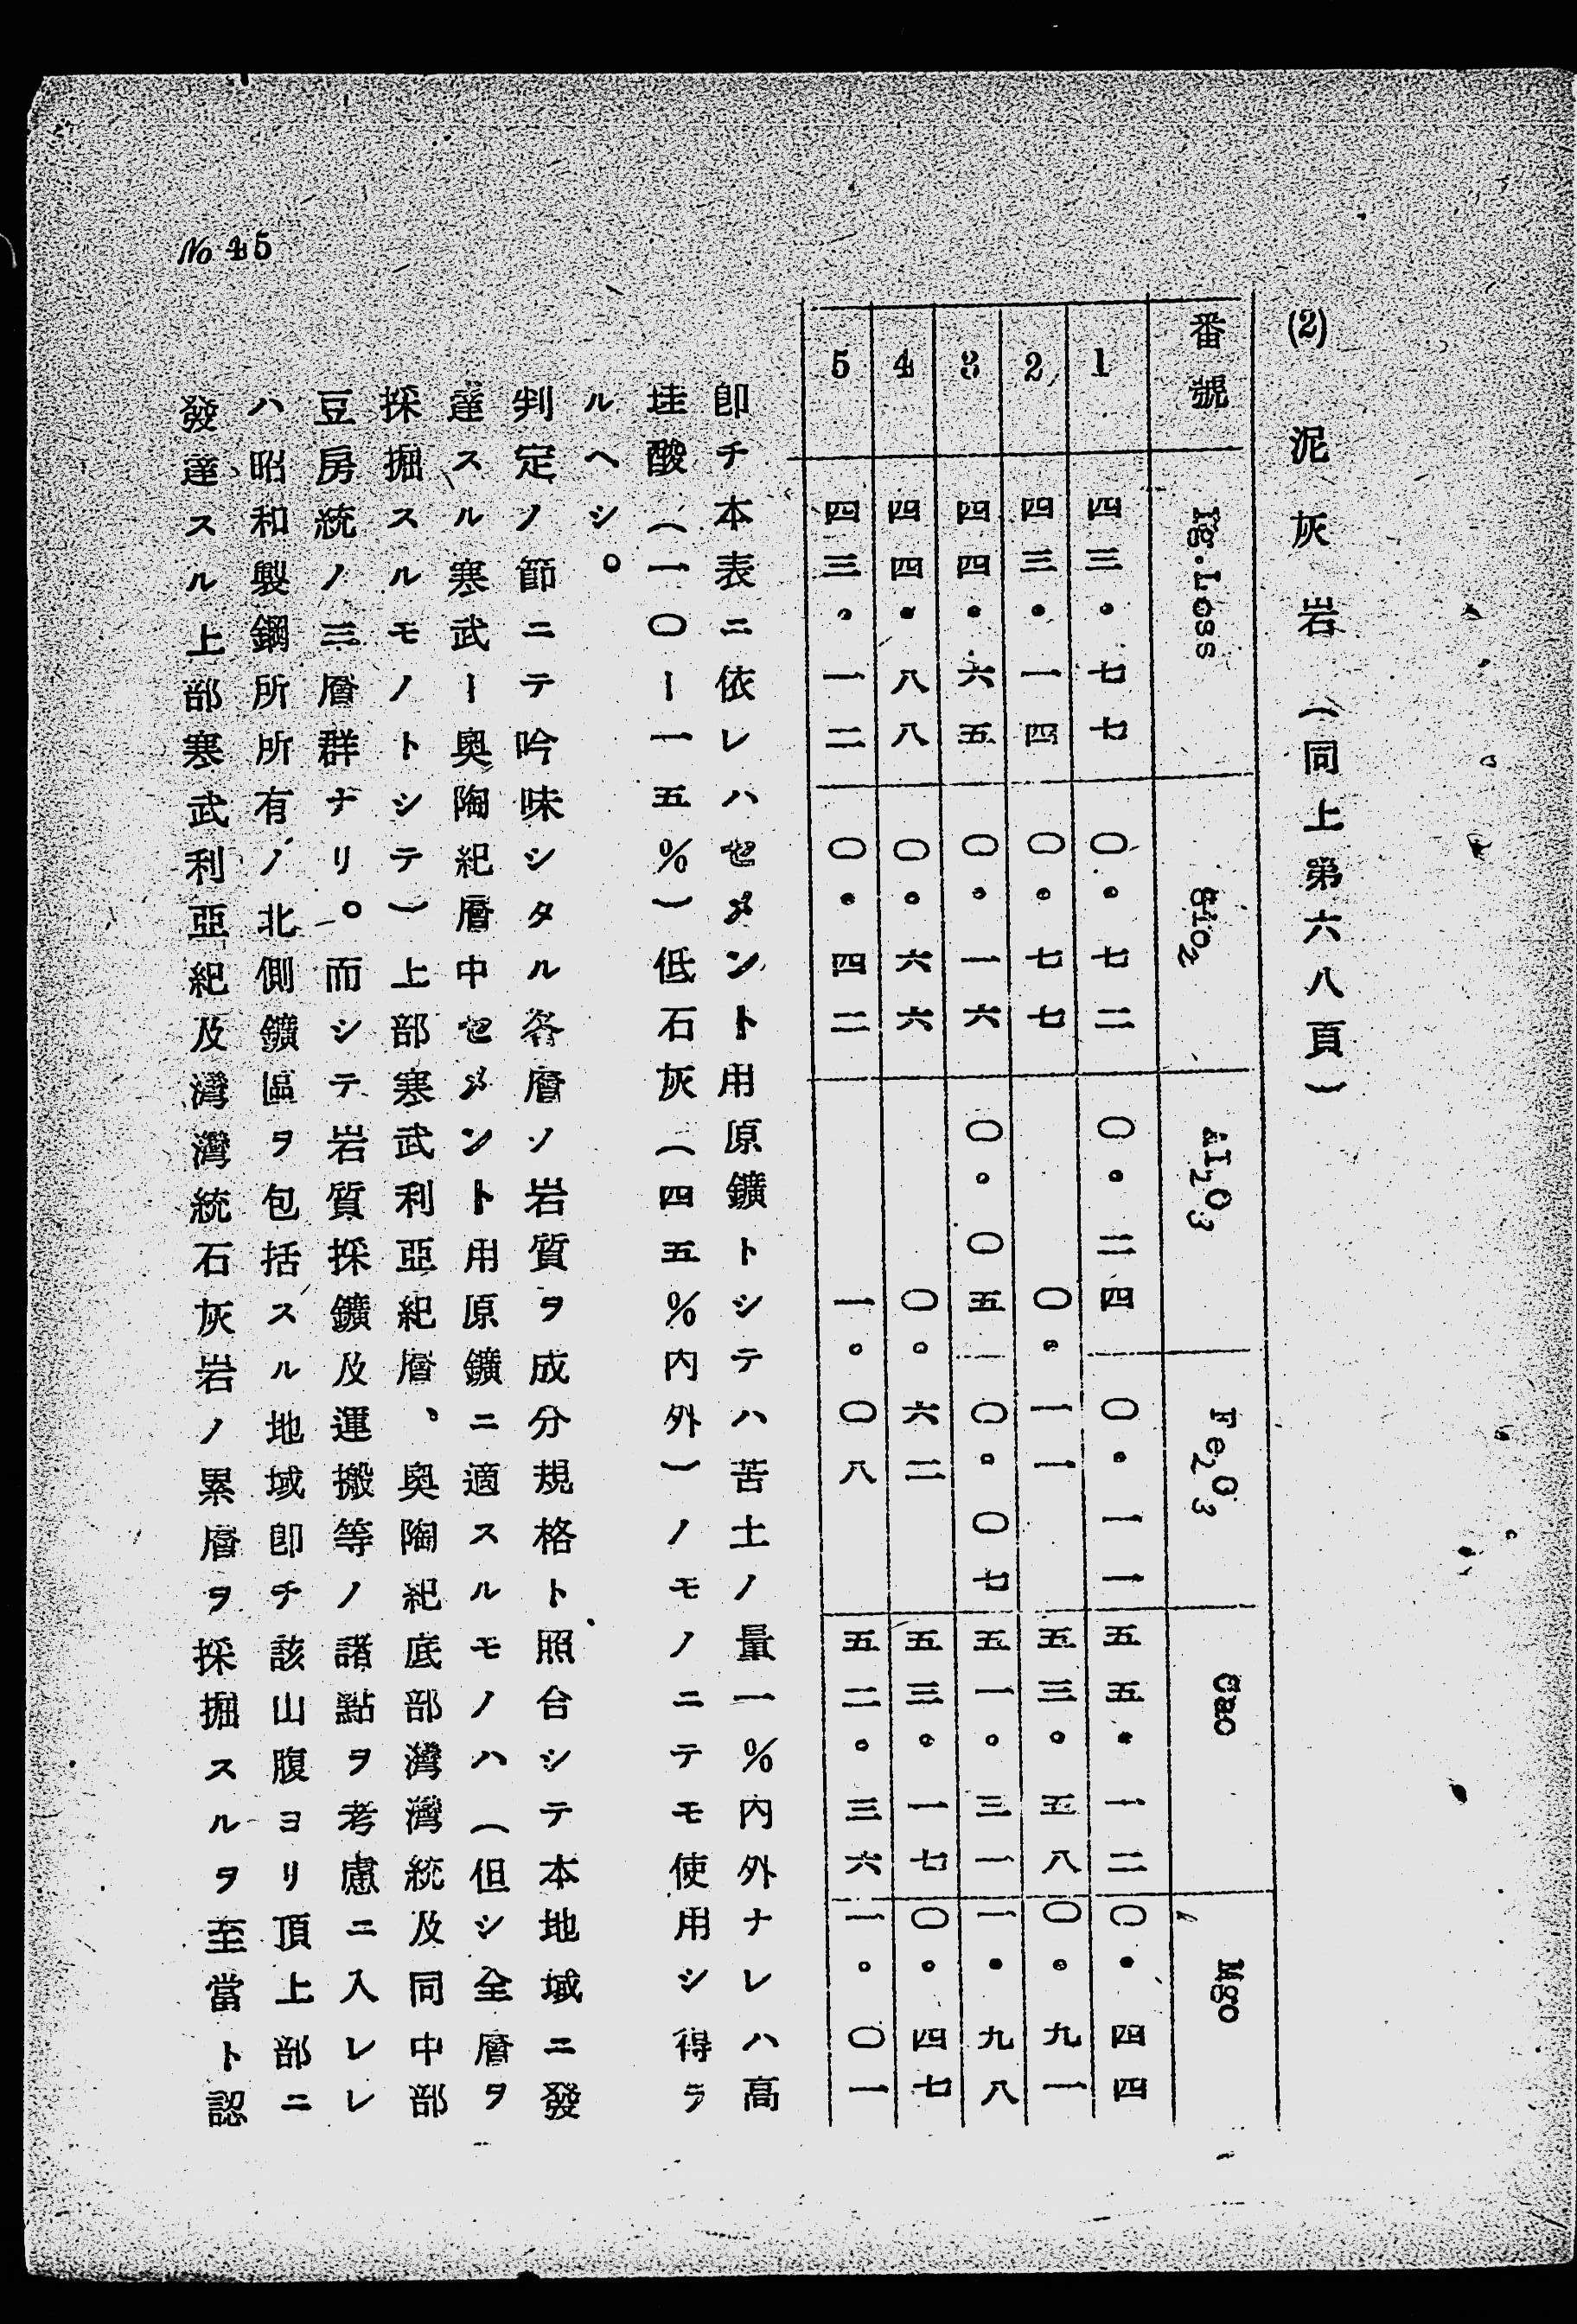 (2) 泥灰岩（同上第六八頁）
番號 Ig.Loss SiO2 Al2O3 Fe2O3 Cao Mgo
1 四三・七七 〇・七二 〇・二四 〇・一一 五五・一二 〇・四四
2 四三・一四 〇・七七 〇・一一 五三・五八 〇・九一
3 四四・六五 〇・一六 〇・〇五 〇・〇七 五一・三一 一・九八
4 四四・八八 〇・六六 〇・六二 五三・一七 〇・四七
5 四三・一二 〇・四二 一・〇八 五二・三六 一・〇一
卽チ本表ニ依レハセメント用原鑛トシテハ苦土ノ量一%内外ナレハ高
珪酸（一〇ー一五%）低石灰（四五%内外）ノモノニテモ使用シ得ラ
ルヘシ。
判定ノ節ニテ吟味シタル各層ノ岩質ヲ成分規格ト照合シテ本地域ニ發
達スル寒武ー奥陶紀層中セメント用原鑛ニ適スルモノハ（但シ全層ヲ
採掘スルモノトシテ）上部寒武利亞紀層、奥陶紀底部灣灣統及同中部
豆房統ノ三層群ナリ。而シテ岩質採鑛及運搬等ノ諸點ヲ考慮ニ入レレ
ハ昭和製鋼所所有ノ北側鑛區ヲ包括スル地域卽チ該山腹ヨリ頂上部ニ
發達スル上部寒武利亞紀及灣灣統石灰岩ノ累層ヲ採掘スルヲ至當ト認
No 45